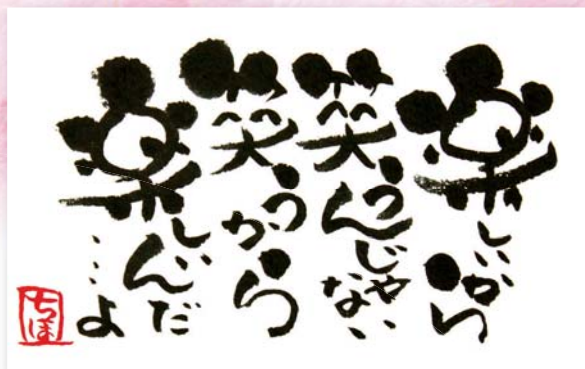 楽しいから
笑うんじゃない
笑うから
楽しいんだ
…よ
ちほ